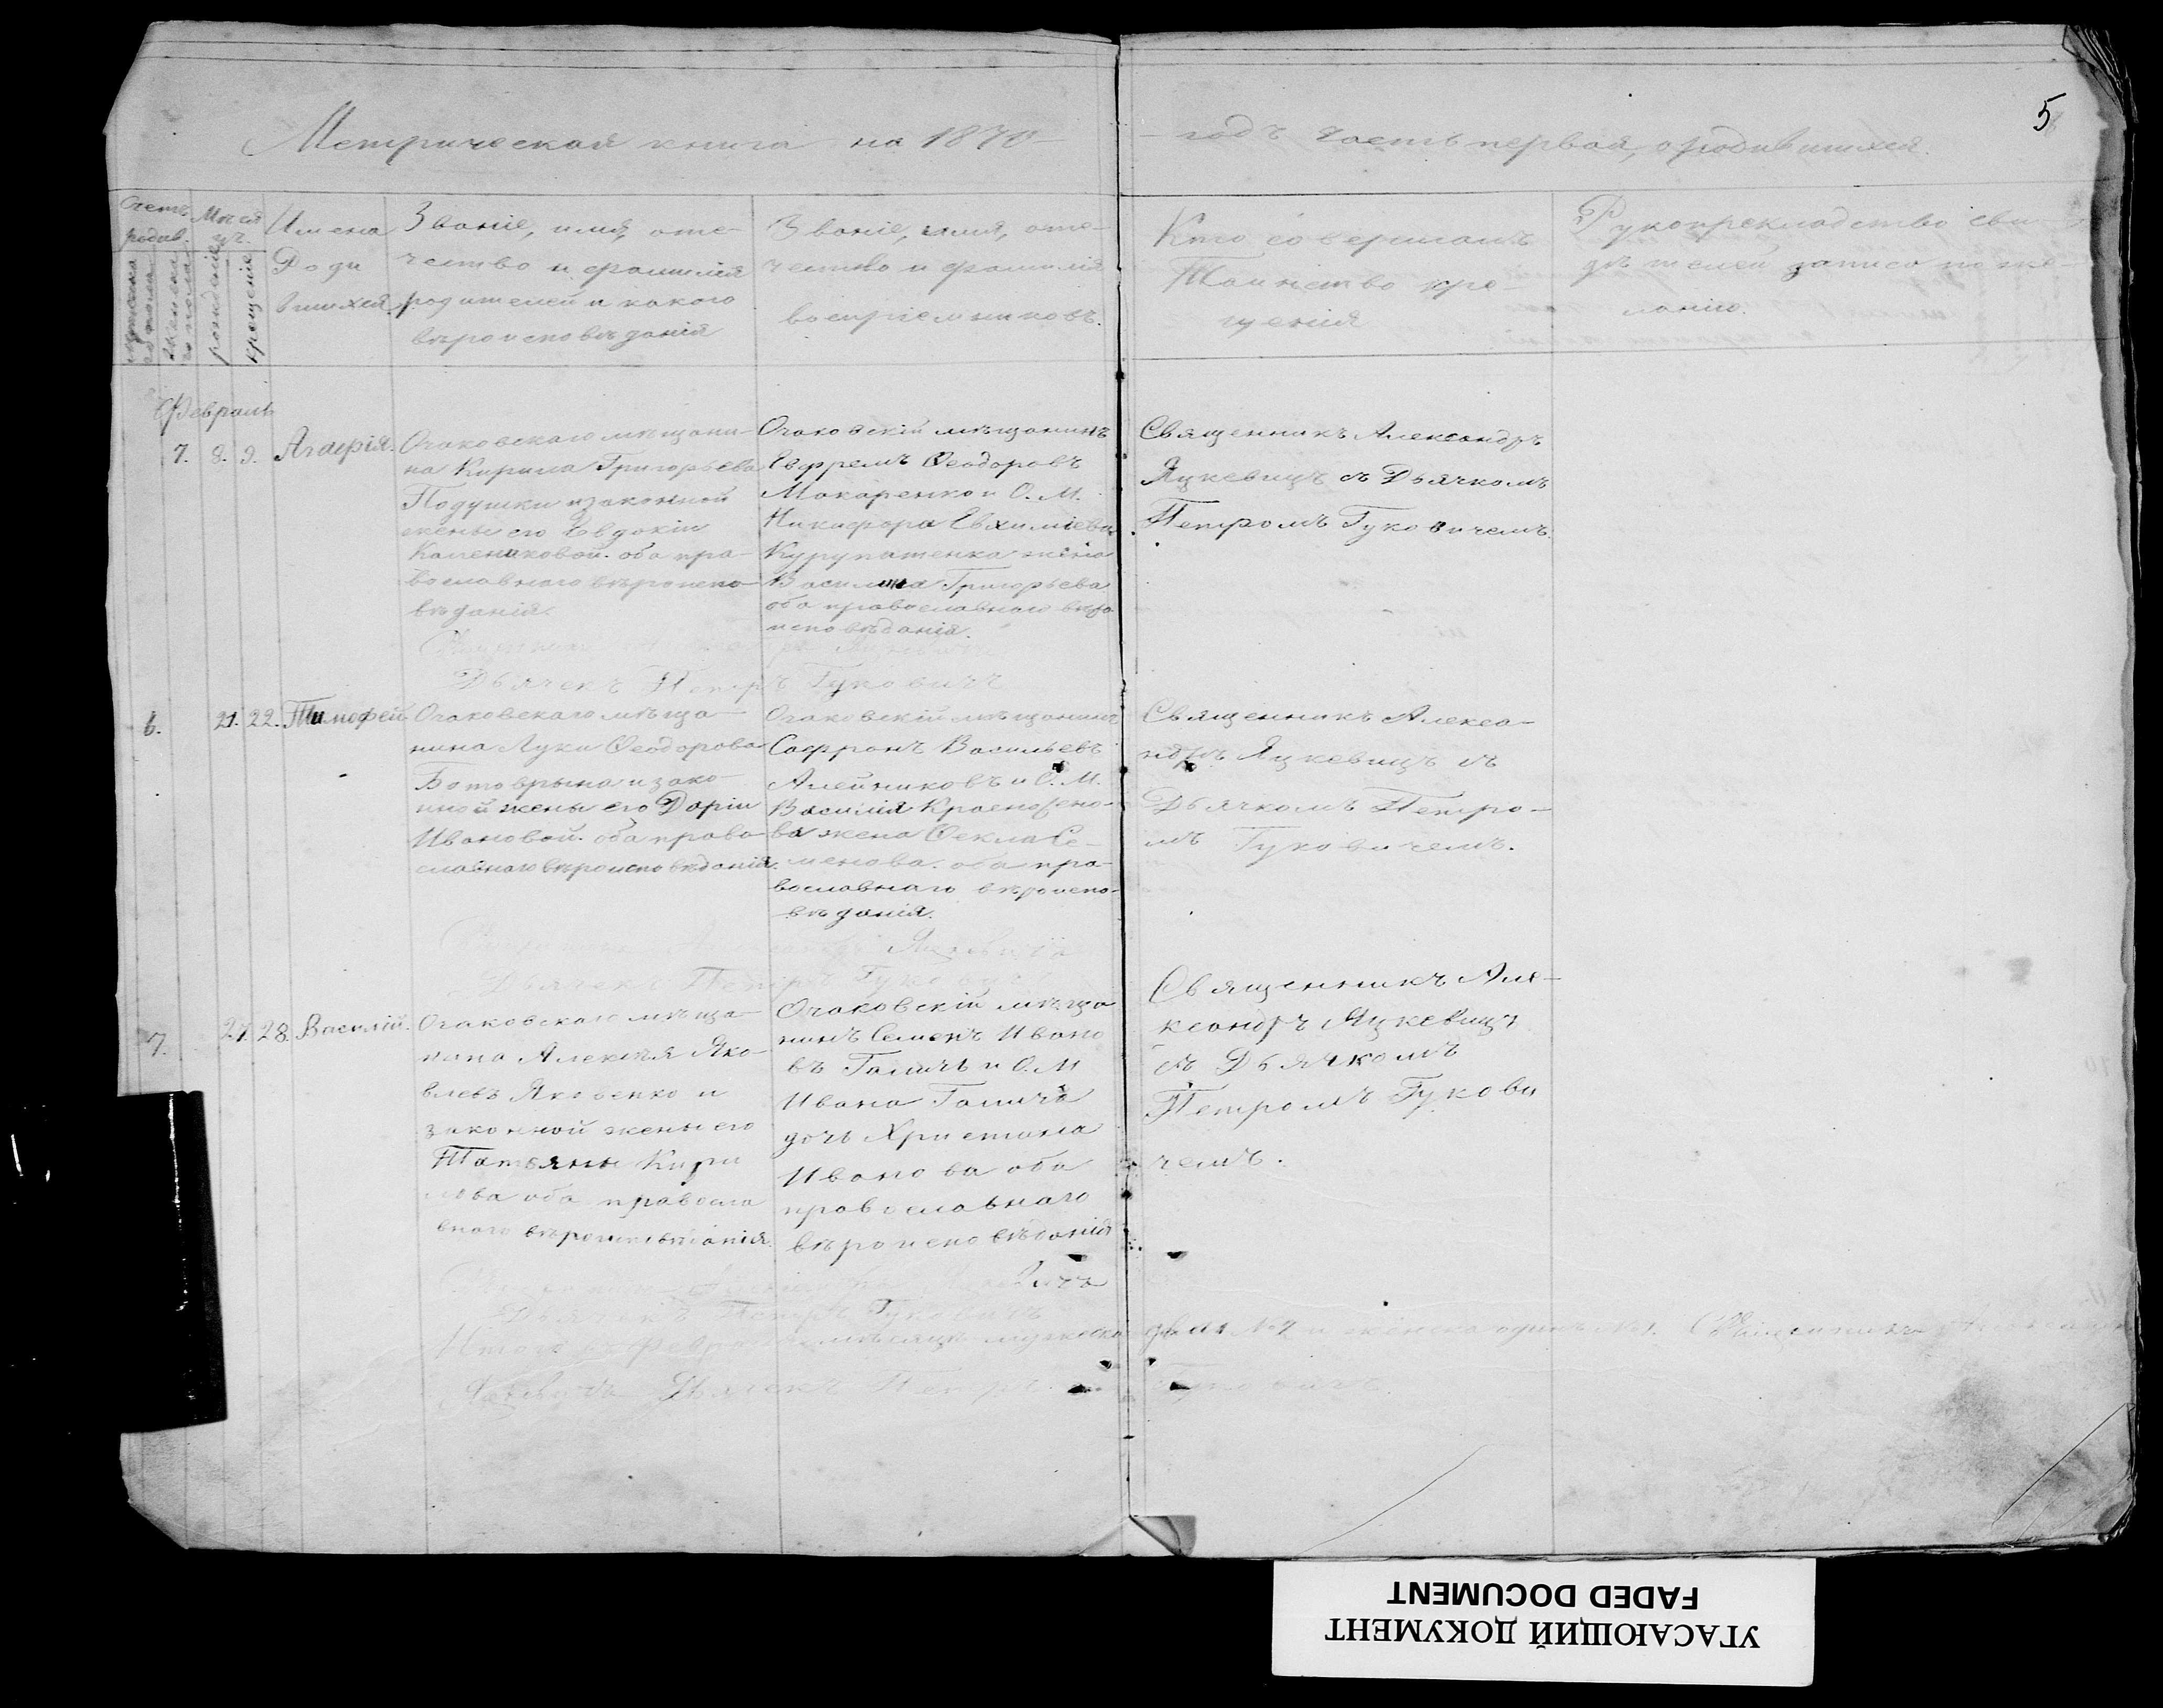 5
Метрическая книга на 1870
годъ часть первая, о родившихся.
Счетъ
родив.
Мѣся
цъ.
Имена
Роди
вшихся
Званіе, имя, оте-
чество и фамилія
родителей и какого
вѣроисповѣданія
Званіе, имя, оте-
чество и фамилія
воспріемниковъ.
Кто совершалъ
Таинство кре-
щенія
Рукоприкладство сви-
дѣтелей записи по же-
ланію.
мужеска
го пола
женска
го пола
рожденіе
крещеніе
Февраль
7. 8. 9.
Агаѳрія.
Очаковскаго мѣщани-
на Кирила Григорьева
Подушки и законной
жены его Евдокіи
оба пра-
вославнаго вѣроиспо-
вѣданія.
Очаковскій мѣщанинъ
Евфремъ Ѳеодоровъ
Макаренко и О. М.
Никифора Евхиміева
Курупатенка жена
Василина Григорьева
оба православнаго вѣро
исповѣданія.
Священникъ Александръ
Яцкевичъ съ Дьячкомъ
Петромъ Гуковичемъ.
Дьячекъ Петръ Гуковичъ
6. 21. 22.
Тимофей
Очаковскаго мѣща-
нина Луки Ѳеодорова
и зако-
нной жены его Даріи
Ивановой. оба право-
славнаго вѣроисповѣданія.
Очаковскій мѣщанинъ
Софронъ Васильевъ
Алейниковъ и О. М.
Василія
ва жена Ѳекла Се-
менова. оба пра-
вославнаго вѣроиспо-
вѣданія.
Священникъ Алекса-
ндръ Яцкевичъ съ
Дьячкомъ Петро-
мъ Гуковичемъ.
Яцкевичъ
Дьячекъ Петръ Гуковичъ
7. 27. 28.
Василій.
Очаковскаго мѣща-
нина Алексѣя Яко-
влевъ Яковенко и
законной жены его
Татьяны Кири
лова оба правосла
внаго вѣроисповѣданія.
Очаковскій мѣща
нинъ Семенъ Ивано
въ Галичъ и О. М
Ивана Галича
дочь Христина
Иванова оба
православнаго
вѣроисповѣданія
Священникъ Але-
ксандръ Яцкевичъ
съ Дьячкомъ
Петромъ Гукови
чемъ.
Дьячекъ Петръ Гуковичъ
Итого въ Февралѣ мѣсяцѣ мужеска
и женска одинъ №1. Священникъ
Яцкевичъ Дьячекъ Петръ Гуковичъ
УГАСАЮЩИЙ ДОКУМЕНТ
FADED DOCUMENT